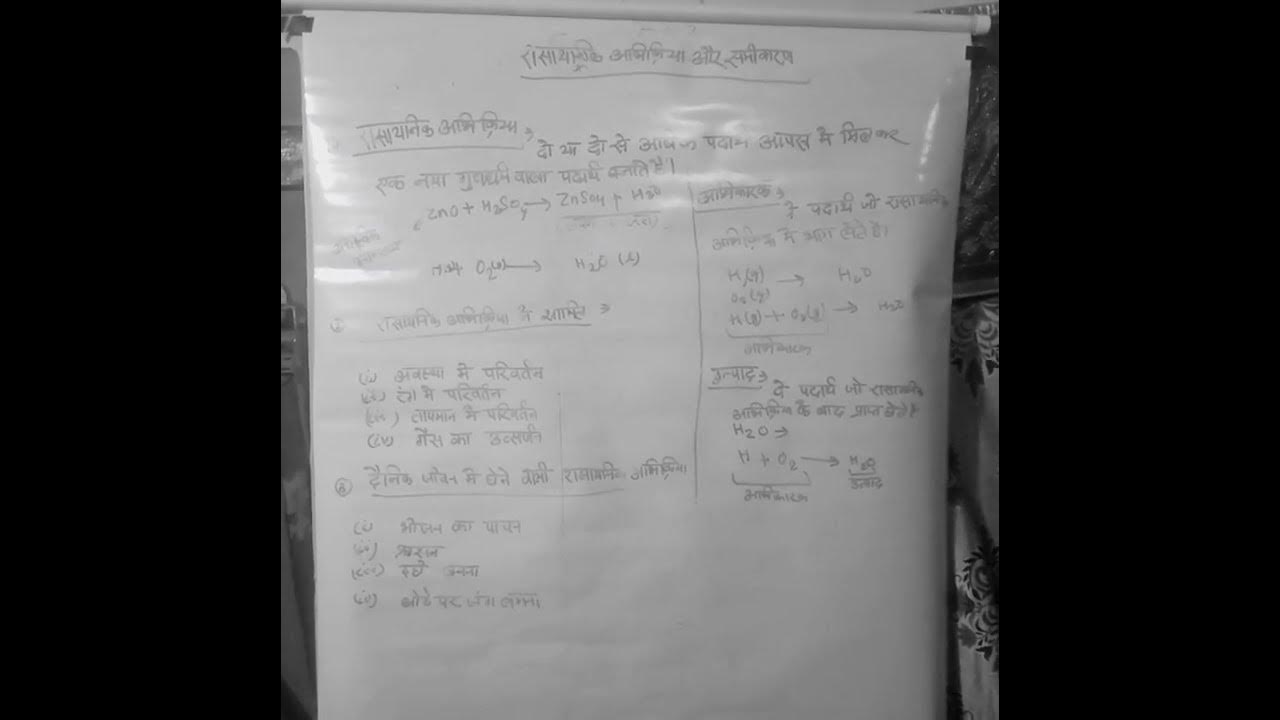 रासायनिक अभिक्रिया और समीकरण
रासायनिक अभिक्रिया →
दो या दो से अधिक पदार्थ आपस में मिलकर
एक नया गुणधर्म वाला पदार्थ बनाते है।
ZnO + H2SO4 → ZnSO4 + H2O
O2(g) → H2O (l)
रासायनिक अभिक्रिया के
(i) अवस्था में परिवर्तन
(ii) रंग में परिवर्तन
(iii) तापमान में परिवर्तन
(iv) गैस का उत्सर्जन
दैनिक जीवन में होने वाली रासायनिक अभिक्रिया
(i) भोजन का पाचन
(ii) श्वसन
(iii) दही जमना
(iv) लोहे पर जंग लगना
अभिकारक →
वे पदार्थ जो रासायनिक
अभिक्रिया में भाग लेते है।
H(g) → H2O
O2(g)
H(g) + O2(g) → H2O
अभिकारक
उत्पाद →
वे पदार्थ जो रासायनिक
अभिक्रिया के बाद प्राप्त होते है
H2O →
H + O2 → H2O
अभिकारक उत्पाद